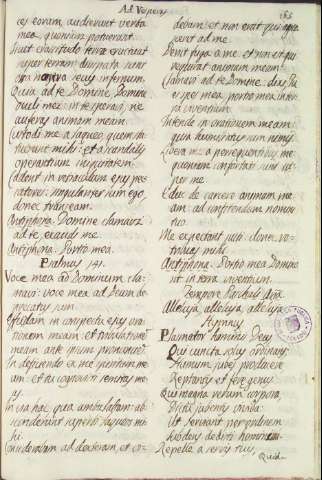 Ad Vesperas
185
cej eorum, audierunt verba
mea quoniam potuerunt.
Sicut crassitudo terrae erupta est
super terram: dissipata sunt
ossa nostra secus infernum.
Quia ad te Domine, Domine
oculi mei: in te speravi, ne
auferas animam meam.
Custodi me a laqueo quem sta
tuerunt mihi: et a scandalis
operantium iniquitatem.
Cadent in retiaculo ejus pec
catores: singulariter sum ego,
donec transeam.
Antiphona. Domine clamavi
ad te exaudi me.
Antiphona. Portio mea.
Psalmus 141.
Voce mea ad Dominum cla
mavi: voce mea ad Deum de
precatus sum.
Effundo in conspectu ejus ora
tionem meam: et tribulationem
meam ante ipsum pronuntio.
In deficiendo ex me spiritum me
um: et tu cognovisti semitas me
as.
In via hac, qua ambulabam: abs
conderunt superbi laqueos mi
hi.
Considerabam ad dexteram, et vi-
debam: et non erat qui cognos
ceret me.
Periit fuga a me: et non est qui
requirat animam meam.
Clamavi ad te Domine: dixi, Tu
es spes mea, portio mea in ter
ra viventium.
Intende in orationem meam:
quia humiliatus sum nimis.
Libera me a persequentibus me:
quoniam confortati sunt su
per me.
Educ de carcere animam me
am, ad confitendum nomini
tuo.
Me expectant justi: donec re-
tribuas mihi.
Antiphona: Portio mea Domine
sit in terra viventium.
Tempore Paschali Aña.
Alleluja, alleluja, alleluja
Hymnus
Plasmator hominis Deus
Qui cuncta solus ordinans
Humum jubes producere
Reptantis et ferae genus
Qui magna rerum corpora
Dictu jubentis vivida
Ut serviant per ordinem
Subdens dedisti homini.
Repelle a servis tuis
Quid-